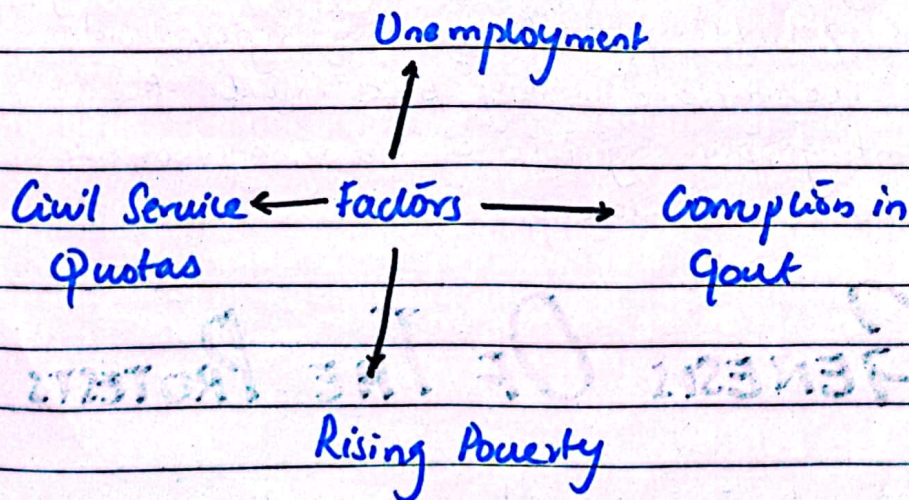 Unemployment
Civil Service ← Factors → Corruption in
Quotas
Govt
Rising Poverty